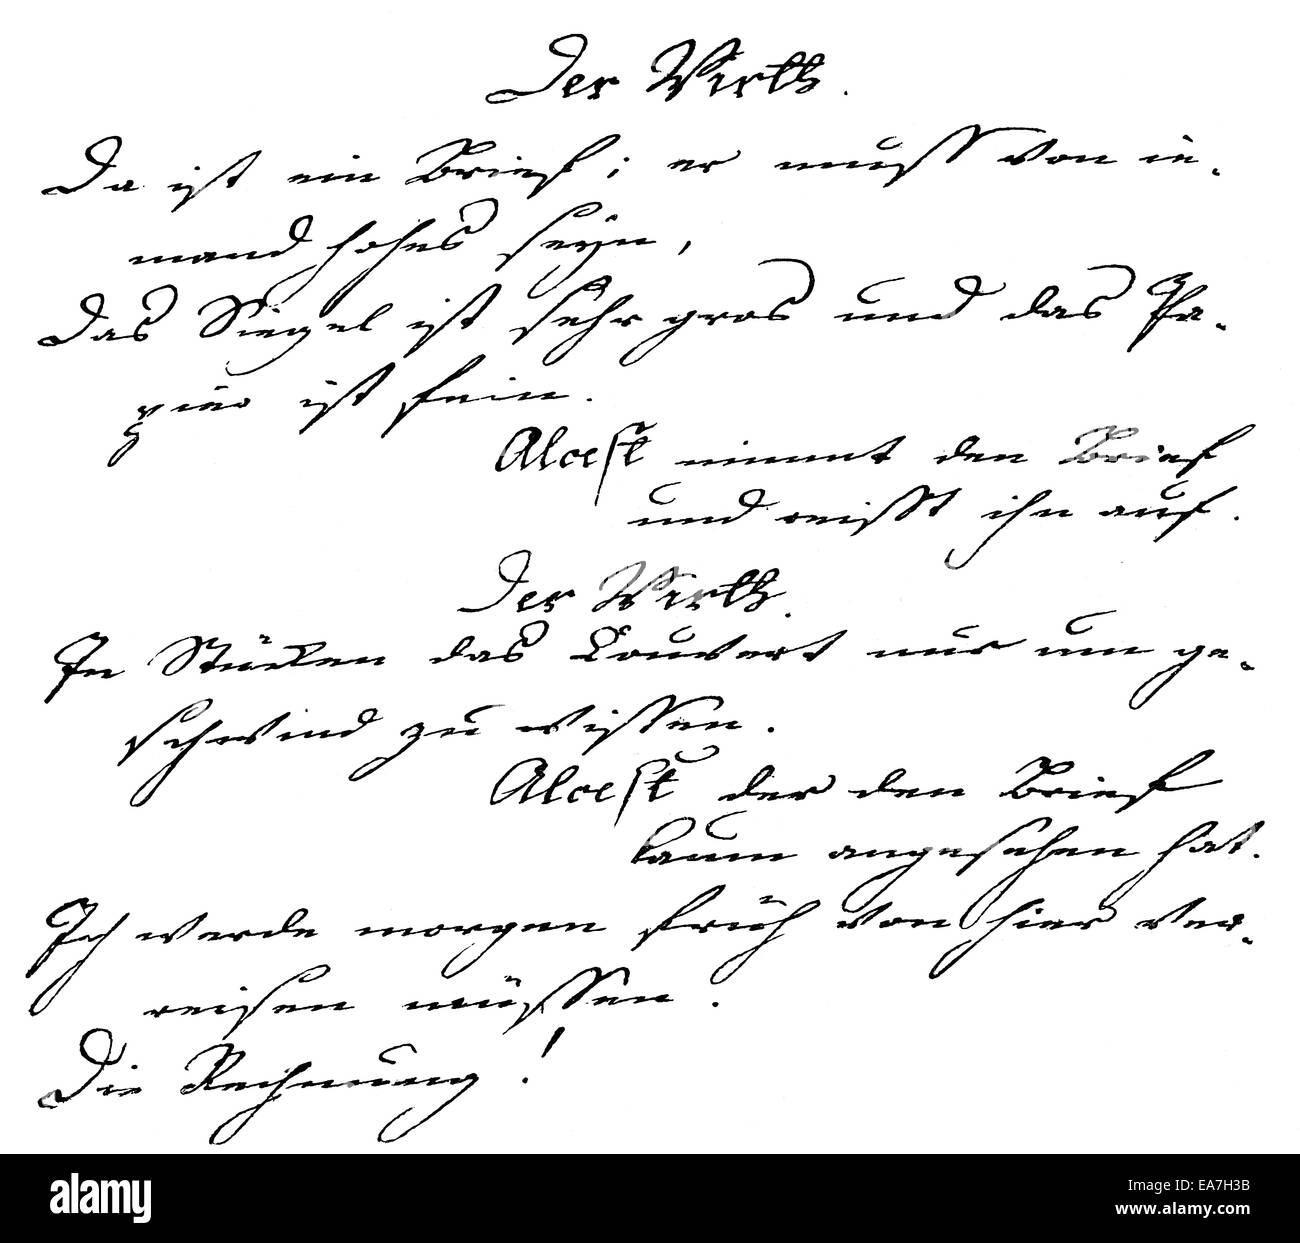 Der Wirth.
Da ist ein Brief; er muss von ie-
mand hohes seyn,
Das Siegel ist sehr gros und das Pa-
pier ist fein.
Alcest nimmt den Brief
und reisst ihn auf.
Der Wirth.
In Stücken das Couvert nur um ge-
schwind zu wissen.
Alcest der den Brief
kaum angesehen hat.
Ich werde morgen früh von hier ver-
reisen müssen.
Die Rechnung!
alamy
Image ID: EA7H3B
www.alamy.com